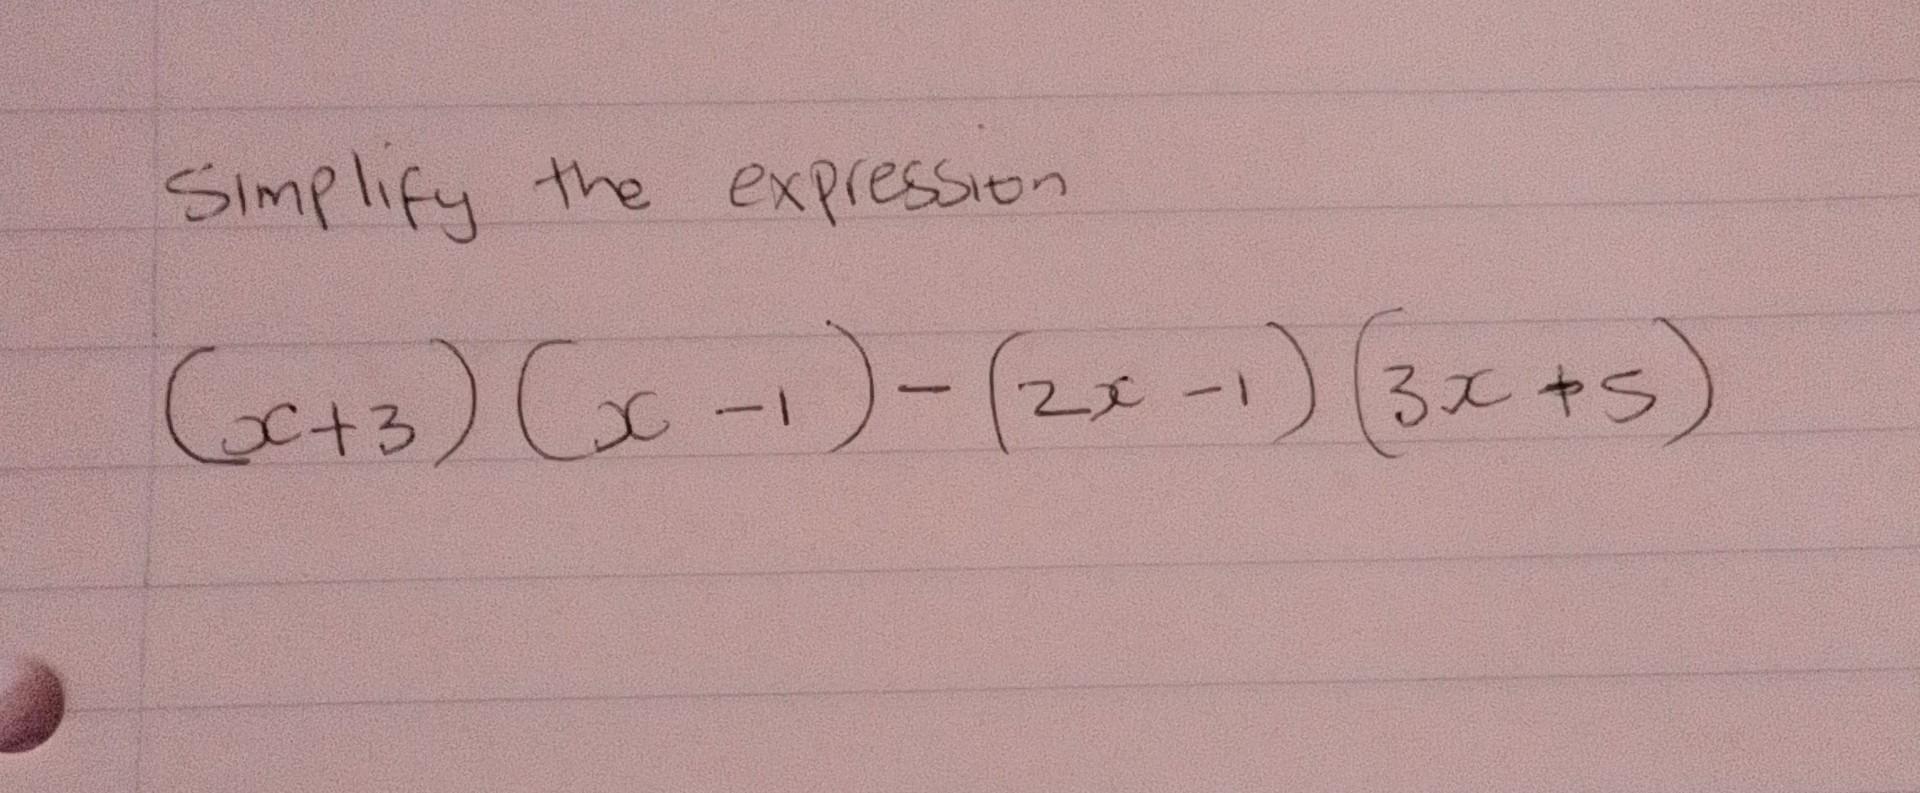 Simplify the expression
(x+3)(x-1)-(2x-1)(3x+5)